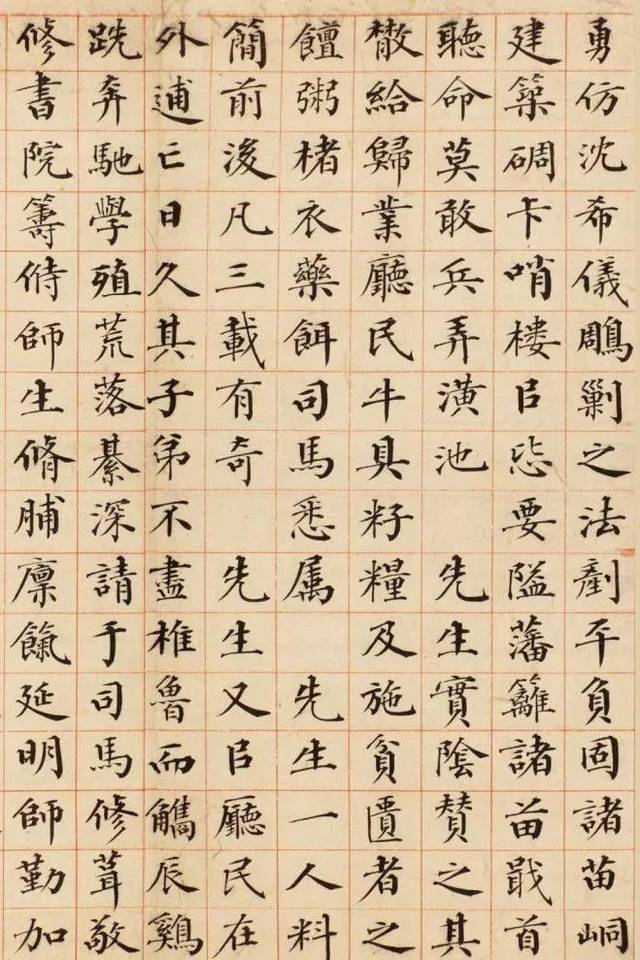 勇仿沈希儀鵰剿之法剷平負固諸苗峒
建築碉卡哨楼㠯要隘藩籬諸苗戢首
聽命莫敢兵弄潢池 先生實陰贊之其
散給歸業廳民牛具籽糧及施貧匱者之
饘粥楮衣藥餌司馬悉属 先生一人料
簡前後凡三載有奇 先生又㠯廳民在
外逋亡日久其子弟不盡椎魯而觿辰鷄
跣奔馳學殖荒落綦深請于司馬修葺敬
修書院籌偫師生脩脯廪餼延明師勤加